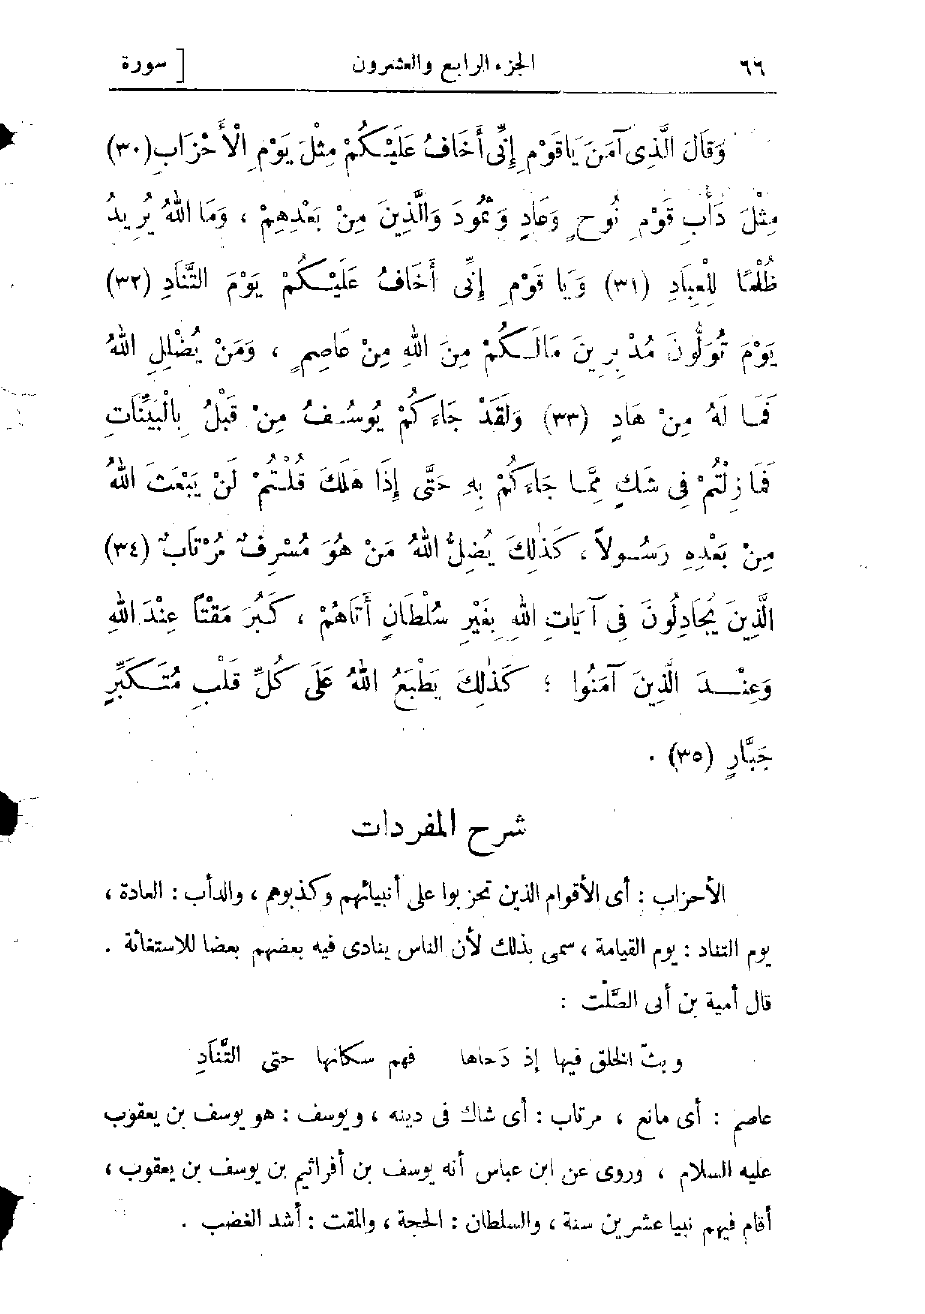 ٦٦ الجزء الرابع والعشرون [ سورة
وَقَالَ الَّذِى آمَنَ يَاقَوْمِ إِنِّى أَخَافُ عَلَيْكُمْ مِثْلَ يَوْمِ الْأَحْزَابِ (٣٠)
مِثْلَ دَأْبِ قَوْمِ نُوحٍ وَعَادٍ وَثَمُودَ وَالَّذِينَ مِنْ بَعْدِهِمْ ، وَمَا اللهُ يُرِيدُ
ظُلْمًا لِلْعِبَادِ (٣١) وَيَا قَوْمِ إِنِّى أَخَافُ عَلَيْكُمْ يَوْمَ التَّنَادِ (٣٢)
يَوْمَ تُوَلُّونَ مُدْبِرِينَ مَالَكُمْ مِنَ اللهِ مِنْ عَاصِمٍ ، وَمَنْ يُضْلِلِ اللهُ
فَمَا لَهُ مِنْ هَادٍ (٣٣) وَلَقَدْ جَاءَكُمْ يُوسُفُ مِنْ قَبْلُ بِالْبَيِّنَاتِ
فَمَا زِلْتُمْ فِى شَكٍ مِمَّا جَاءَكُمْ بِهِ حَتَّى إِذَا هَلَكَ قُلْتُمْ لَنْ يَبْعَثَ اللهُ
مِنْ بَعْدِهِ رَسُولاً ، كَذٰلِكَ يُضِلُّ اللهُ مَنْ هُوَ مُسْرِفٌ مُرْتَابٌ (٣٤)
الَّذِينَ يُجَادِلُونَ فِى آيَاتِ اللهِ بِغَيْرِ سُلْطَانٍ أَتَاهُمْ ، كَبُرَ مَقْتًا عِنْدَ اللهِ
وَعِنْدَ الَّذِينَ آمَنُوا ؛ كَذٰلِكَ يَطْبَعُ اللهُ عَلَى كُلِّ قَلْبِ مُتَكَبِّرٍ
جَبَّارٍ (٣٥) .
شرح المفردات
الأحزاب : أى الأقوام الذين تحزبوا على أنبيائهم وكذبوهم ، والدأب : العادة ،
يوم التناد : يوم القيامة ، سمى بذلك لأن الناس ينادى فيه بعضهم بعضا للاستغاثة .
قال أمية بن أبى الصَّلْت :
وبثّ الخلق فيها إذ دَحاها فهم سكانها حتى التَّنَادِ
عاصم : أى مانع ، مرتاب : أى شاك فى دينه ، ويوسف : هو يوسف بن يعقوب
عليه السلام ، وروى عن ابن عباس أنه يوسف بن أفرائيم بن يوسف بن يعقوب ،
أقام فيهم نبيا عشرين سنة ، والسلطان : الحجة ، والمقت : أشد الغضب .